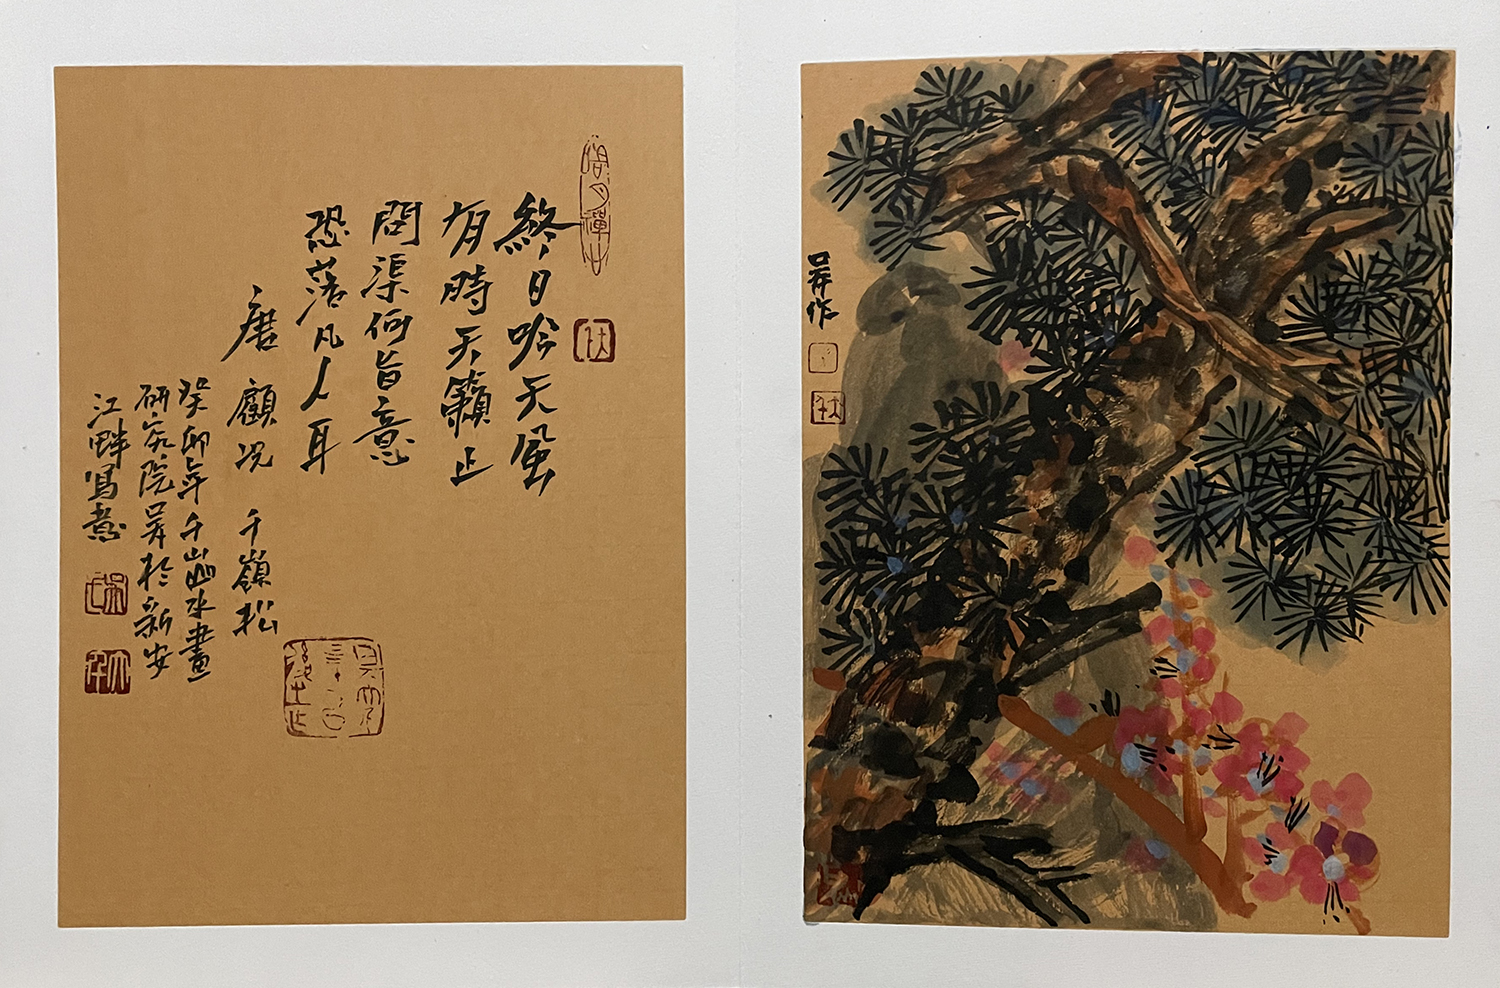 終日吟天風
有時天籟止
問渠何旨意
恐落凡人耳
唐 顧況 千嶺松
癸卯年千山水畫
研究院昇於新安
江畔寫意
昇作